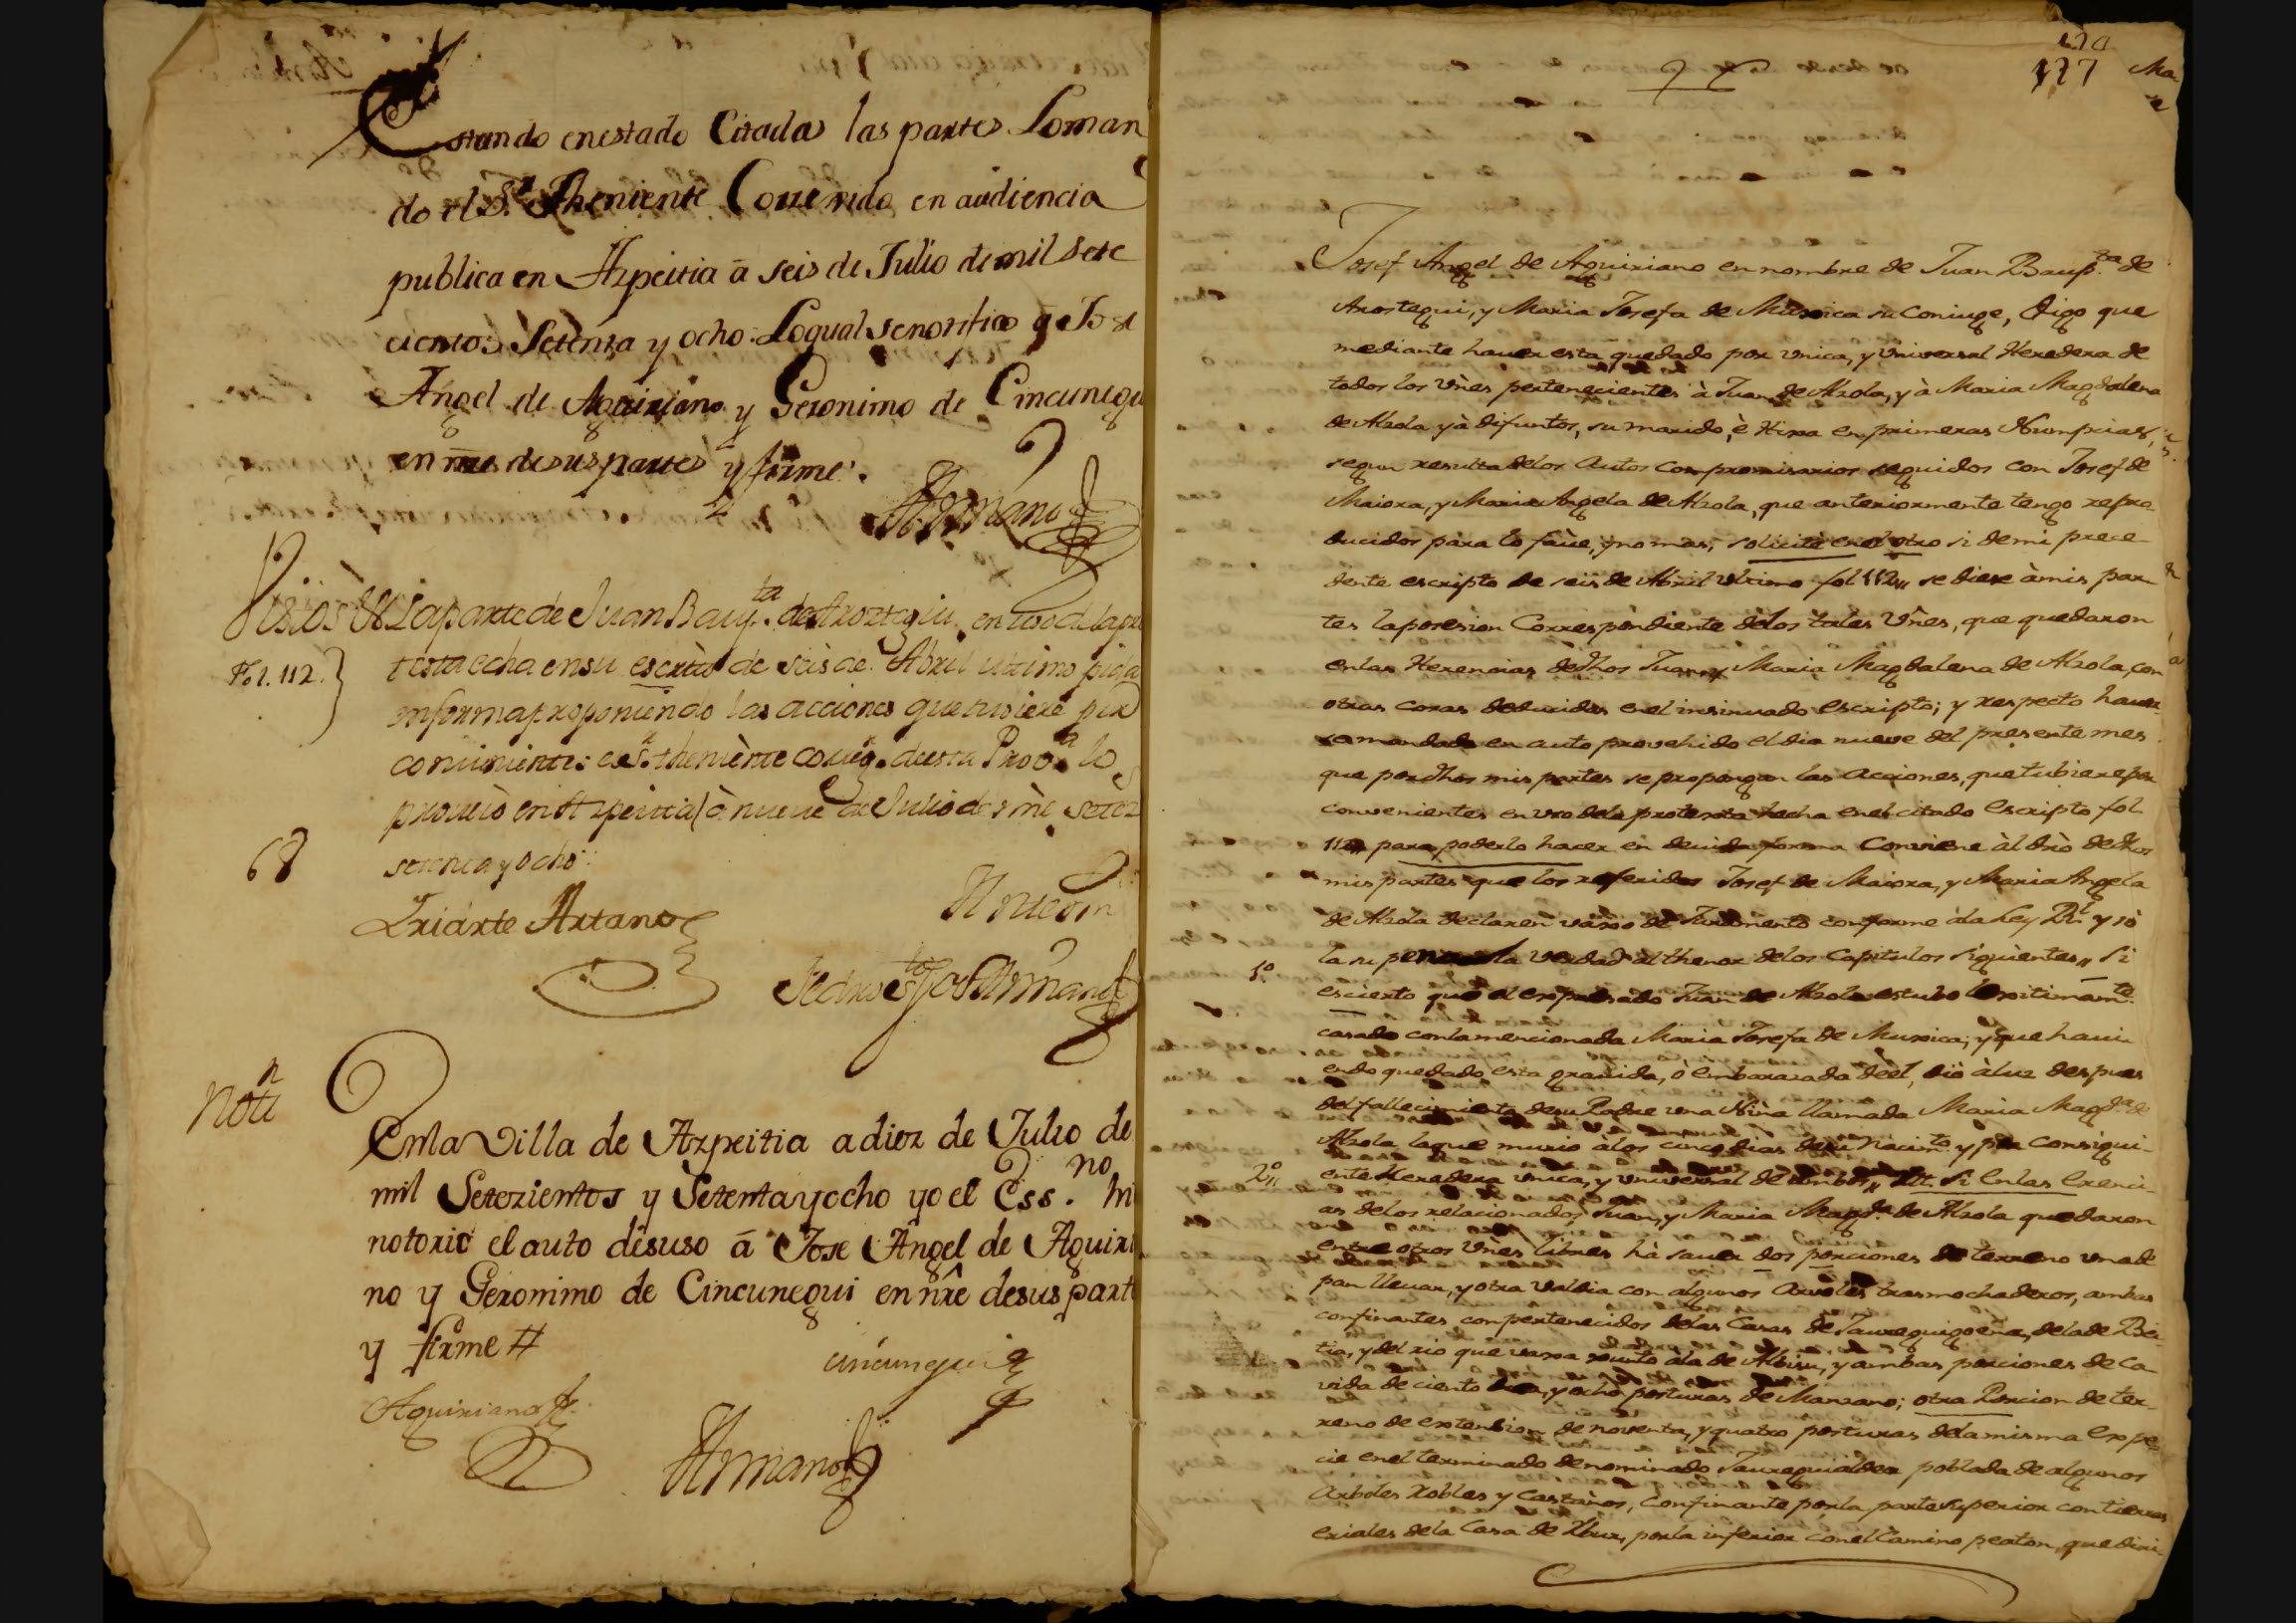 Estando en estado Citadas las partes Loman
do el S.r Theniente Corregidor en audiencia
publica en Azpeitia â seis de Julio de mil sete
cientos Setenta y ocho. Loqual se notifico q̃ Jose
Angel de Aguiriano y Geronimo de Cincunegu
en nr̃e desus partes y firme.
Armano
Vistos La parte de Juan Baup.ta de Aroztegiu en uso de la pro
Fol. 112. } testa echa en su escrito de seis de Abril ultimo pida
en forma proponiendo las acciones que tuviere por
combinientes: el S.r theniente correg.r de esta Prov.a lo
proveiò en Azpeitia à nueve de Julio de mil setez
68 setenta y ocho
Iriarte Artano
Ante mi
Pedro
Armano
Not.n
En la Villa de Azpeitia a diez de Julio de
mil Setezientos y Setenta y ocho yo el Ess.no hi
notorio el auto desuso â Jose Angel de Aguiri
no y Geronimo de Cincunegui en nr̃e desus part
y firme #
Cincunegui
Aguiriano
Armano
177
Josef Angel de Aguiriano en nombre de Juan Baup.ta de
Arostegui, y Maria Josefa de Muxica su Coniuge, Digo que
mediante haver esta quedado por unica, y Universal Heredera de
todos los Vñes pertenecientes à Juan de Alzola, y à Maria Magdalena
de Alzola yà difuntos, su marido, è Hixa en primeras Numpcias,
segun resulta delos Autos compromisarios seguidos con Josef de
Maiora, y Maria Angela de Alzola, que anteriormente tengo repro-
ducidos para lo fave, y no mas, solicitè en el otro si de mi prece-
dente escripto de seis de Abril ultimo fol 112,, se diese à mis par-
tes la posesion Correspondiente delos tales Vñes, que quedaron
en las Herencias de dhos Juan, y Maria Magdalena de Alzola, con
otras cosas deducidas en el insinuado escripto; y respecto haver-
se mandado en auto provehido el dia nueve del presente mes
que por dhos mis partes se propongan las Acciones, que tubiere por
convenientes en uso dela protexta hecha en el citado escripto fol
112,, para poderlo hacer en devida forma Conviene àl dr̃o de dhos
mis partes que los referidos Josef de Maiora, y Maria Angela
de Alzola declaren vaxo de Juramento conforme àla Ley Rl. y sò
la su pena la verdad àl thenor delos Capitulos siguientes,, Si
1.º es cierto que el expresado Juan de Alzola estubo lexitimam.te
casado con la mencionada Maria Josefa de Muxica; y que havi-
endo quedado esta gravida, ò embarazada deèl, diò à luz despues
del fallecimiento de su Padre una Niña llamada Maria Magd.a de
Alzola la que murio à los cinco dias de su nacim.to y por Consigui-
2.º,, ente Heredera unica, y universal de ambos,, Itt. Si en las Erenci-
as delos relacionados Juan, y Maria Magd.a de Alzola quedaron
entre otros Vñes libres hà saver dos porciones de terreno una de
pan llevar, y otra valdia con algunos Arvoles trasmochaderos, ambas
confinantes con pertenecidos delas Casas de Jaureguigoena, dela de Be-
tia, y del rio que vaxa xunto àla de Albisu, y ambas porciones de Ca-
vida de ciento y ocho posturas de Manzano; otra Porcion de ter-
reno de extension de noventa, y quatro posturas dela misma Expe-
cie en el terminado denominado Jaureguialdea poblada de algunos
Arboles Robles y Castaños, Confinante por la parte superior con tierras
eriales dela Casa de Ybur, por la inferior con el Camino peaton, que diri-